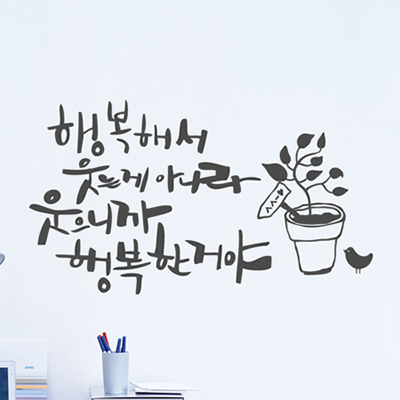 행복해서
웃는게 아니라
웃으니까
행복한거야
^^~♥